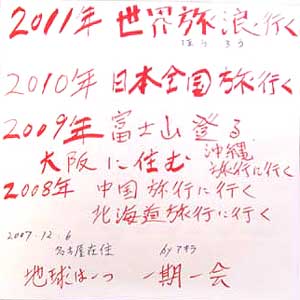 2011年 世界旅浪行く
ほうろう
2010年 日本全国旅行く
2009年 富士山登る
大阪に住む 沖縄旅行に行く
2008年 中国旅行に行く
北海道旅行に行く
2007.12.6
名古屋在住 by アキラ
地球は一つ 一期一会